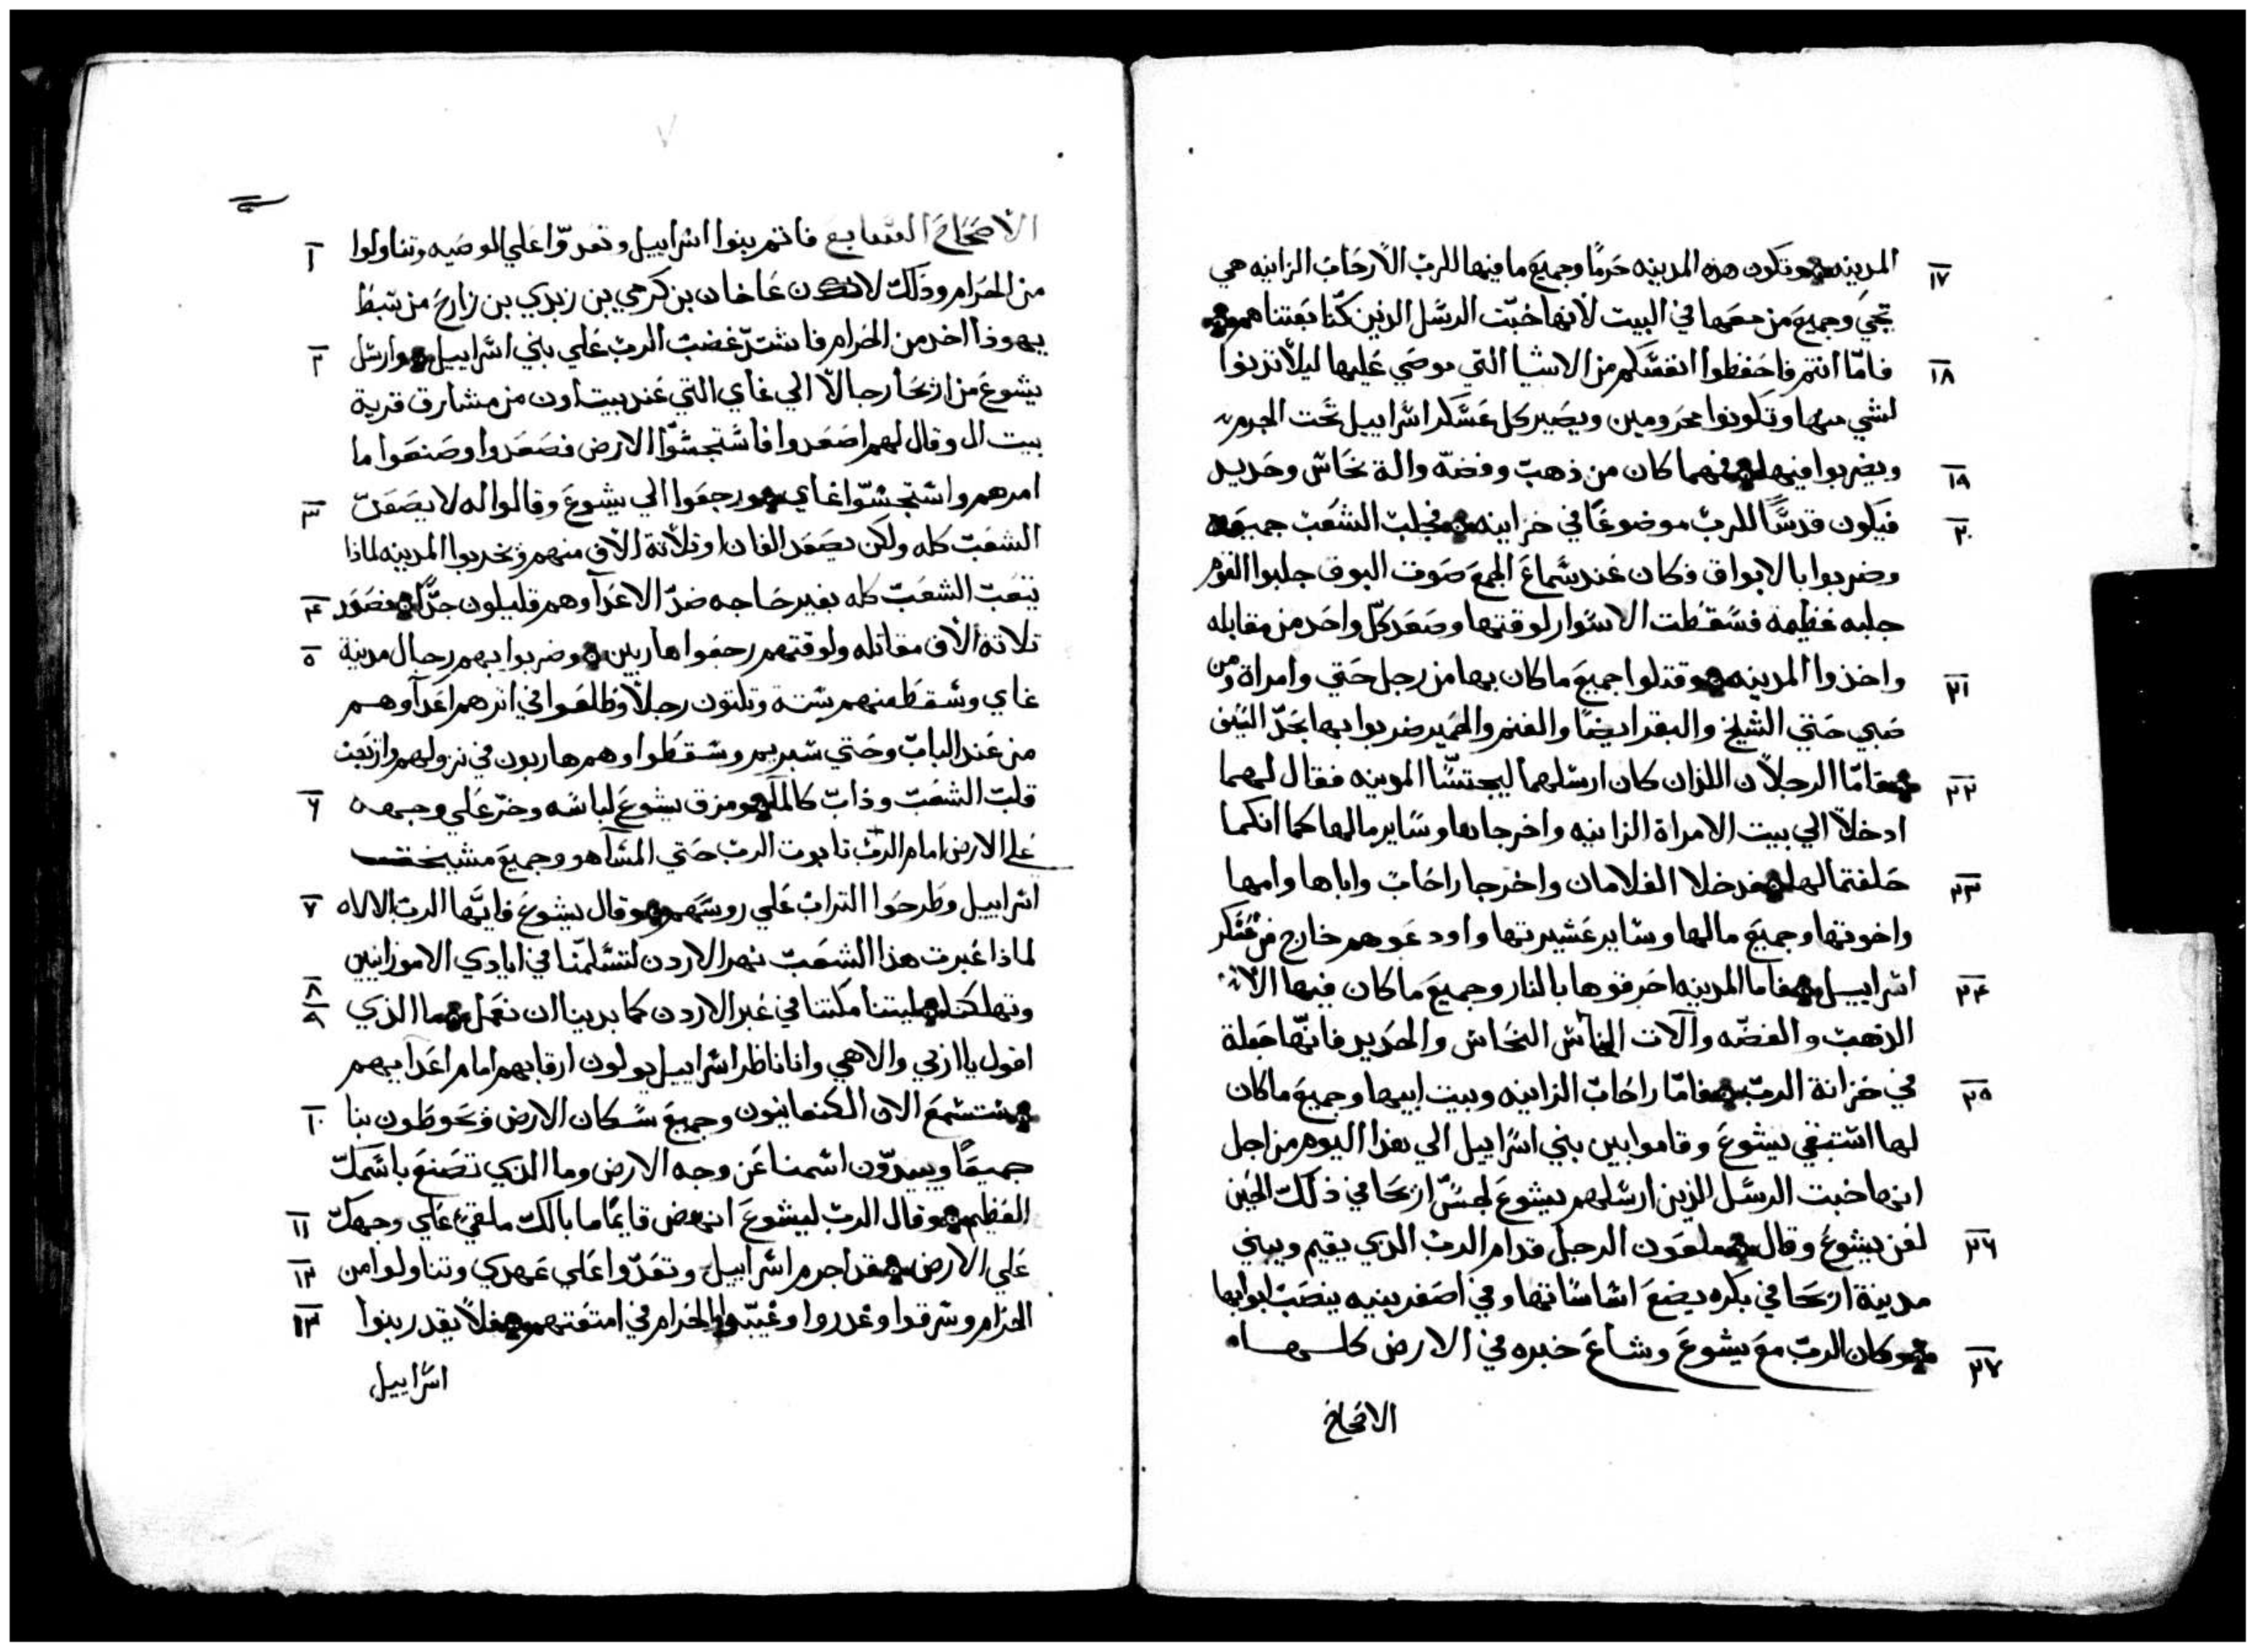 ١٧ المدينه وتكون هذه المدينه حَرمًا وجميعَ ما فيها للرب الّا رحَاب الزانيه هي
تجي وجميعَ من معَها في البيت لانها خبّت الرسَل الذين كنّا بعَتناهم
١٨ فامّا انتم فاحَفظوا انفسَكم من الاشيا التي موصَي عَليها ليلا تدنوا
لشي منها وتكونوا محَرومين ويصَير كل عَسَكر اسَراييل تحَت الجرم
١٩ ويضربوا فيها فمهما كان من ذهب وفضه والة نحَاسَ وحَديد
٢٠ فيكون قدسًا للرب موضوعًا في خزاينه فجلب الشعَب جميعَه
وضربوا بالابواق فكان عَند سَماعَ الجمع صَوت البوق جلبوا القوم
جلبه عَظيمة فسَقطت الاسَوار لوقتها وصَعَد كل واحَد من مقابله
٢١ واخذوا المدينه وقتلوا جميعَ ما كان بها من رجل حَتي وامراة ومن
صَبي حَتي الشيخ والبقر ايضًا والغنم والحَمير ضربوا بها بحَدّ السَيف
٢٢ فامّا الرجلان اللذان كان ارسَلهما ليجتسّا المدينه فقال لهما
ادخلا الي بيت الامراة الزانيه واخرجاها وسَاير مالها كما انكما
٢٣ حَلفتما لها فدخلا الغلامان واخرجا راحَاب واباها وامها
واخوتها وجميعَ مالها وسَاير عَشيرتها واودعَوهم خارج من عَسَكر
٢٤ اسَراييل فاما المدينه احَرقوها بالنار وجميعَ ما كان فيها الا
الذهب والفضّه وآلات النحَاسَ والحَديد فانّها جعَلة
٢٥ في خزانة الربّ فامّا راحَاب الزانيه وبيت ابيها وجميعَ ما كان
لها اسَتبقي يشوعَ وقاموا بين بني اسَراييل الي هذا اليوم من اجل
انها خبت الرسَل الذين ارسَلهم يشوعَ لجسّ اريحَا في ذلك الحَين
٢٦ لعَن يشوعَ وقال ملعَون الرجل قدام الرب الذي يقيم ويبني
مدينة اريحَا في بكره يضعَ اسَاسَاتها وفي اصَغر بنيه ينصَب ابوابها
٢٧ وكان الربّ معَ يشوعَ وشاعَ خبره في الارض كلها
الاصَحَاح
٧
١ الاصَحَاح السَابعَ فاتم بنوا اسَراييل وتعَدّوا عَلي الموصَيه وتناولوا
من الحَرام وذلك لان عَاخان بن كرمي بن زبدي بن زارحَ من سَبط
٢ يهوذا اخد من الحَرام فاشتدّ غضب الرب عَلي بني اسَراييل وارسَل
يشوعَ من اريحَا رجالا الي عَاي التي عَند بيت اون من مشارق قرية
بيت ال وقال لهم اصَعَدوا فاسَتجسّوا الارض فصَعَدوا وصَنعَوا ما
٣ امرهم واسَتجسّوا عَاي ورجعَوا الي يشوعَ وقالوا له لا يصَعَدّ
الشعَب كله ولكن يصَعَد الفان او تلاتة الاف منهم ونخربوا المدينه لماذا
٤ يتعَب الشعَب كله بغير حَاجه ضدّ الاعَدآ وهم قليلون جدّا فصَعَد
٥ تلاتة ألاف مقاتله ولوقتهم رجعَوا هاربين وضربوا بهم رجال مدينة
عَاي وسَقط منهم سَتة وتلتون رجلا وطلعَوا في اترهم اعَدآوهم
من عَند الباب وحَتي سَبريم وسَقطوا وهم هاربون في نزولهم وارتعَب
٦ قلب الشعَب وذاب كالمآ ومزق يشوعَ لباسَه وخرّ عَلي وجهه
عَلي الارض امام الربّ تابوت الرب حَتي المسَآ هو وجميعَ مشيخة
٧ اسَراييل وطرحَوا التراب عَلي روسَهم وقال يشوعَ فايّها الرب الالاه
لماذا عَبرت هذا الشعَب نهر الاردن لتسَلّمنا في ايادي الاموارنيين
٨ ٩ وتهلكنا ليتنا مكتنا في عَبر الاردن كما بدينا ان نعَمل ما الذي
اقول يا ربي والاهي وانا ناظر اسَراييل يولون ارقابهم امام اعَدايهم
١٠ سَتسَمعَ الان الكنعَانيون وجميعَ سَكان الارض ويحَوطون بنا
جميعًا ويبيدّون اسَمنا عَن وجه الارض وما الذي تصَنعَ باسَمك
١١ العَظيم وقال الرب ليشوعَ انهض قايمًا ما بالك ملقي عَلي وجهك
١٢ عَلي الارض قد اجرم اسَراييل وتعَدّوا عَلي عَهدي وتناولوا من
١٣ الحَرام وسَرقوا وغدروا وغيّبوا الحَرام في امتعَتهم فلا يقدر بنوا
اسَراييل